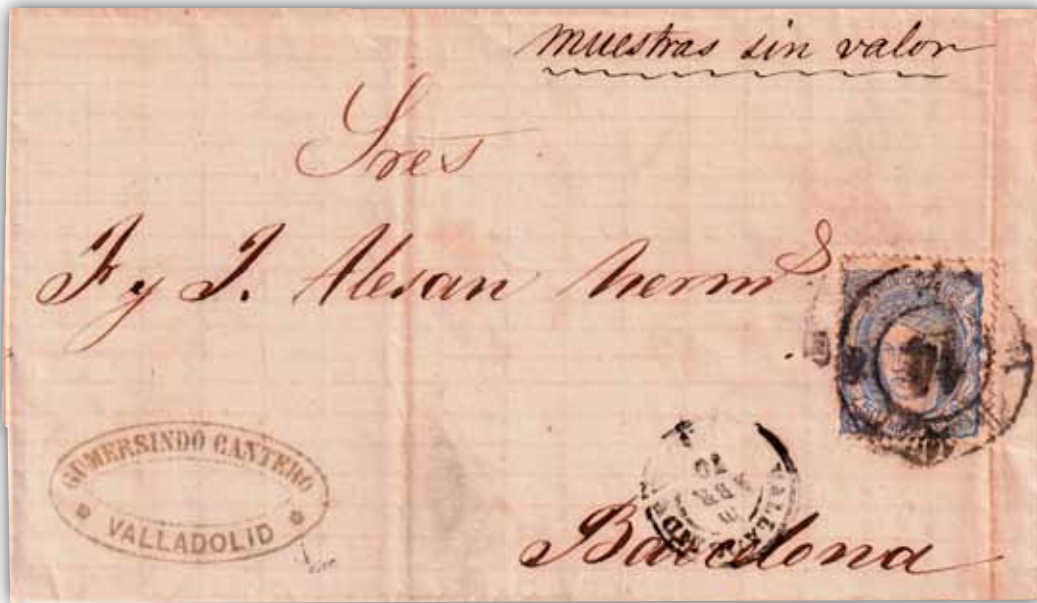 muestras sin valor
Sres
F y J. Alesan herm S
GUMERSINDO CANTERO
VALLADOLID
Barcelona